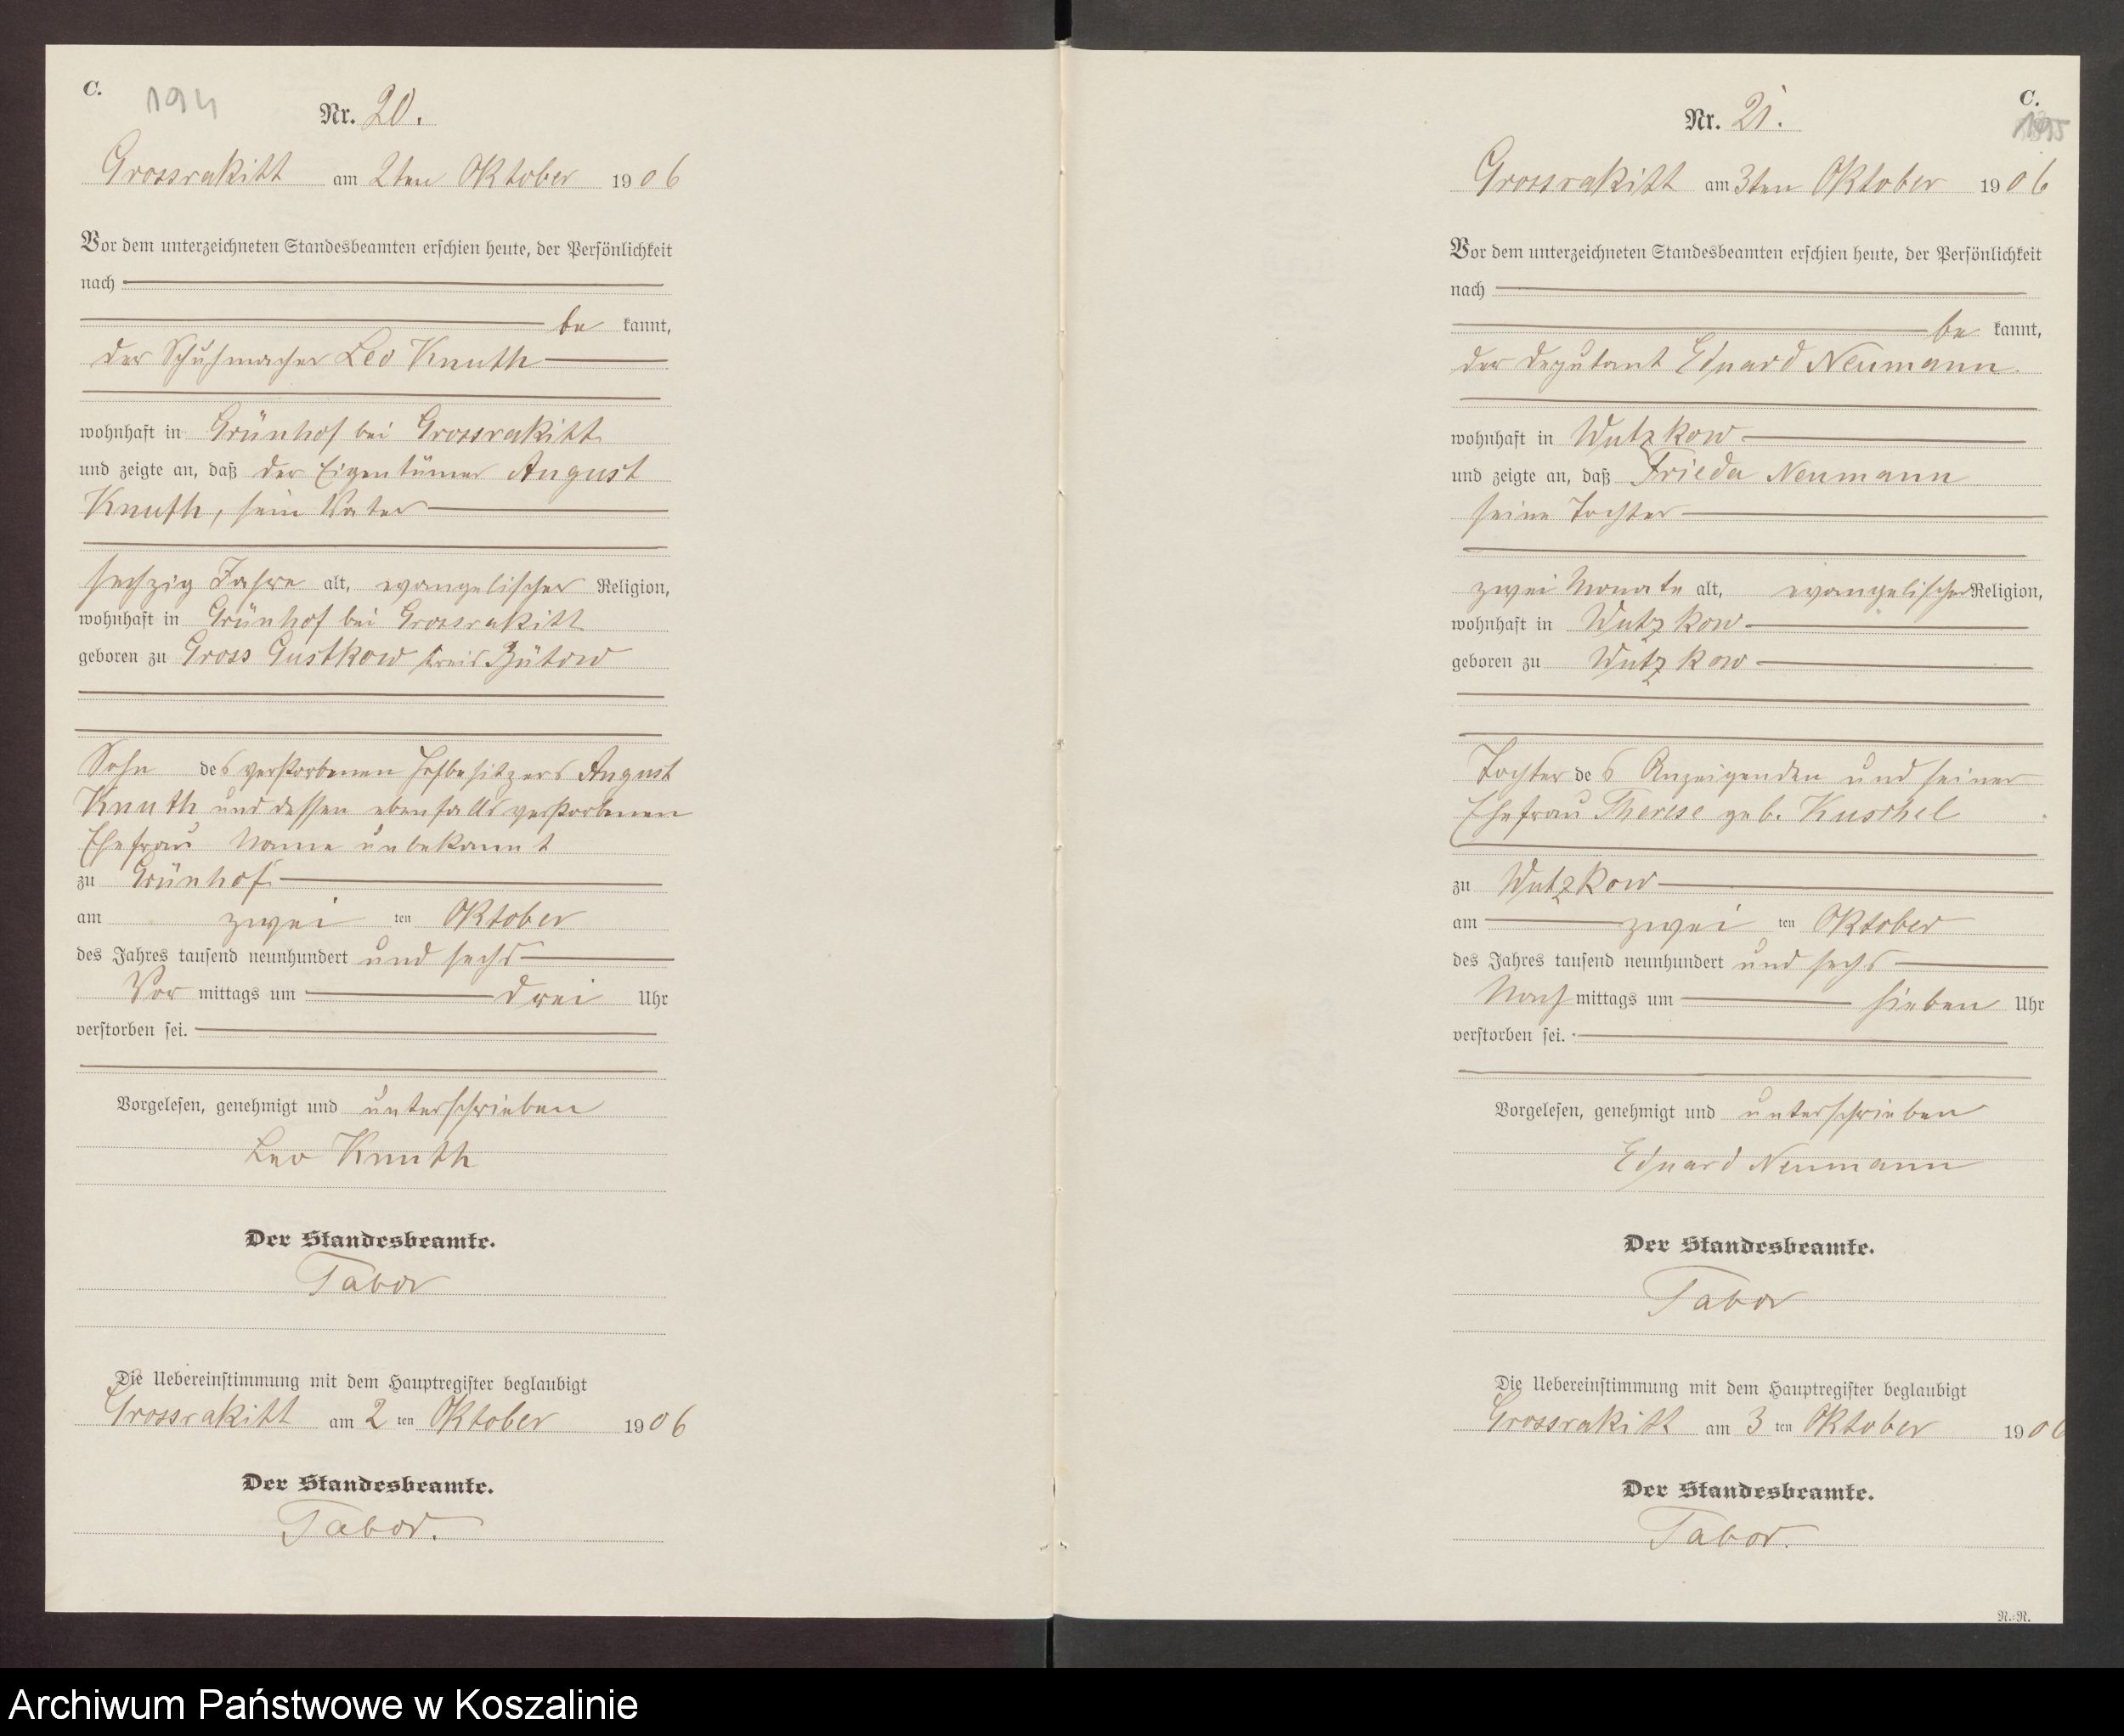 C.
194
Nr. 20.
Grossrakitt am 2ten Oktober 1906
Vor dem unterzeichneten Standesbeamten erschien heute, der Persönlichkeit
nach
be kannt,
der Schuhmacher Leo Knuth
wohnhaft in Grünhof bei Grossrakitt
und zeigte an, daß der Eigentümer August
Knuth, sein Vater
sechzig Jahre alt, evangelischer Religion,
wohnhaft in Grünhof bei Grossrakitt
geboren zu Gross Gustkow Kreis Bütow
Sohn des verstorbenen Hofbesitzers August
Knuth und dessen ebenfalls verstorbenen
Ehefrau Name unbekannt
zu Grünhof
am zwei ten Oktober
des Jahres tausend neunhundert und sechs
Vor mittags um drei Uhr
verstorben sei.
Vorgelesen, genehmigt und unterschrieben
Leo Knuth
Der Standesbeamte.
Tabor
Die Uebereinstimmung mit dem Hauptregister beglaubigt
Grossrakitt am 2 ten Oktober 1906
Der Standesbeamte.
Tabor.
C.
195
Nr. 21.
Grossrakitt am 3ten Oktober 1906
Vor dem unterzeichneten Standesbeamten erschien heute, der Persönlichkeit
nach
be kannt,
der Deputant Eduard Neumann
wohnhaft in Wutzkow
und zeigte an, daß Frieda Neumann
seine Tochter
zwei Monate alt, evangelischer Religion,
wohnhaft in Wutzkow
geboren zu Wutzkow
Tochter des Anzeigenden und seiner
Ehefrau Therese geb. Kuschel
zu Wutzkow
am zwei ten Oktober
des Jahres tausend neunhundert und sechs
Nach mittags um sieben Uhr
verstorben sei.
Vorgelesen, genehmigt und unterschrieben
Eduard Neumann
Der Standesbeamte.
Tabor
Die Uebereinstimmung mit dem Hauptregister beglaubigt
Grossrakitt am 3 ten Oktober 1906
Der Standesbeamte.
Tabor.
N.-N.
Archiwum Państwowe w Koszalinie